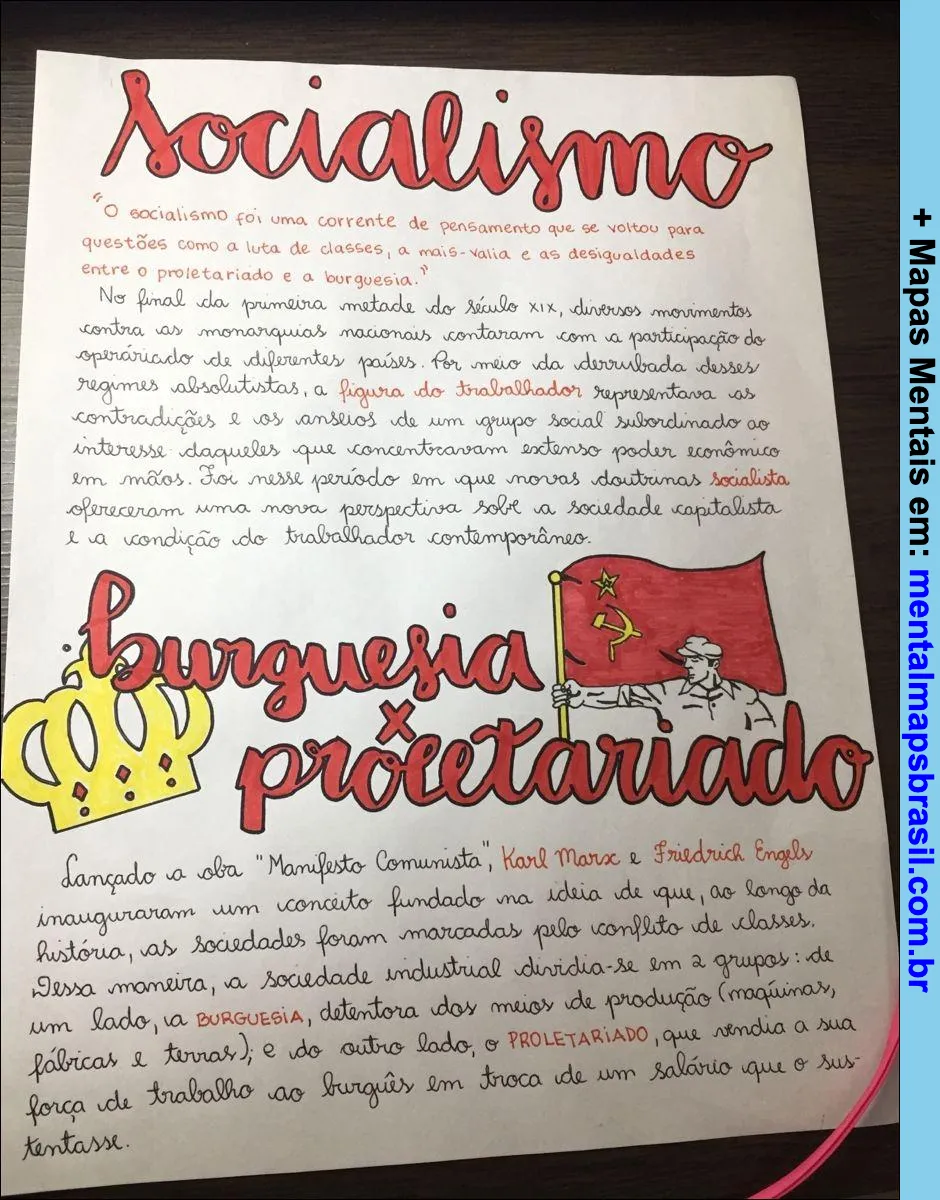 socialismo
"O socialismo foi uma corrente de pensamento que se voltou para
questões como a luta de classes, a mais-valia e as desigualdades
entre o proletariado e a burguesia."
No final da primeira metade do século XIX, diversos movimentos
contra as monarquias nacionais contaram com a participação do
operáriado de diferentes países. Por meio da derrubada desses
regimes absolutistas, a figura do trabalhador representava as
contradições e os anseios de um grupo social subordinado ao
interesse daqueles que concentravam extenso poder econômico
em mãos. Foi nesse período em que novas doutrinas socialista
ofereceram uma nova perspectiva sobre a sociedade capitalista
e a condição do trabalhador contemporâneo.
burguesia
x
proletariado
Lançado a oba "Manifesto Comunista", Karl Marx e Friedrich Engels
inauguraram um conceito fundado na ideia de que, ao longo da
história, as sociedades foram marcadas pelo conflito de classes.
Dessa maneira, a sociedade industrial dividia-se em 2 grupos: de
um lado, a BURGUESIA, detentora dos meios de produção (maqúinas,
fábricas e terras); e do outro lado, o PROLETARIADO, que vendia a sua
força de trabalho ao burguês em troca de um salário que o sus-
tentasse.
+ Mapas Mentais em: mentalmapsbrasil.com.br